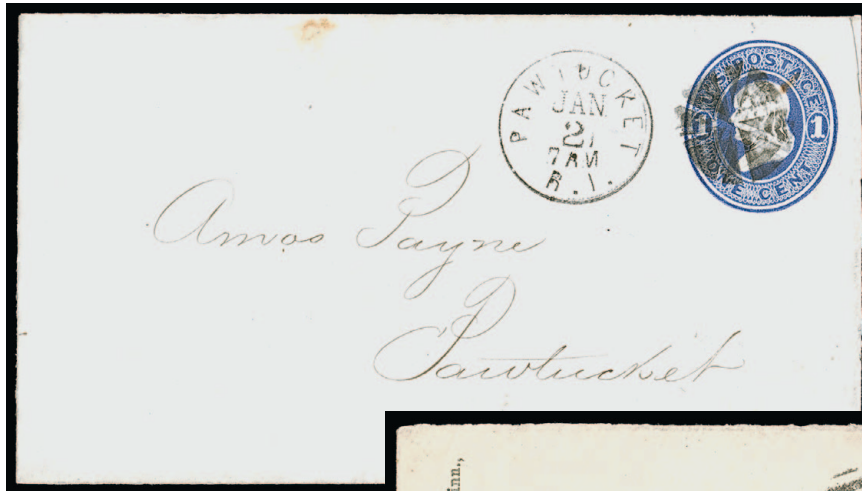 PAWTUCKET
JAN
21
7 AM
R.I.
U.S. POSTAGE
1 1
ONE CENT
Amos Payne
Pawtucket
inn.,